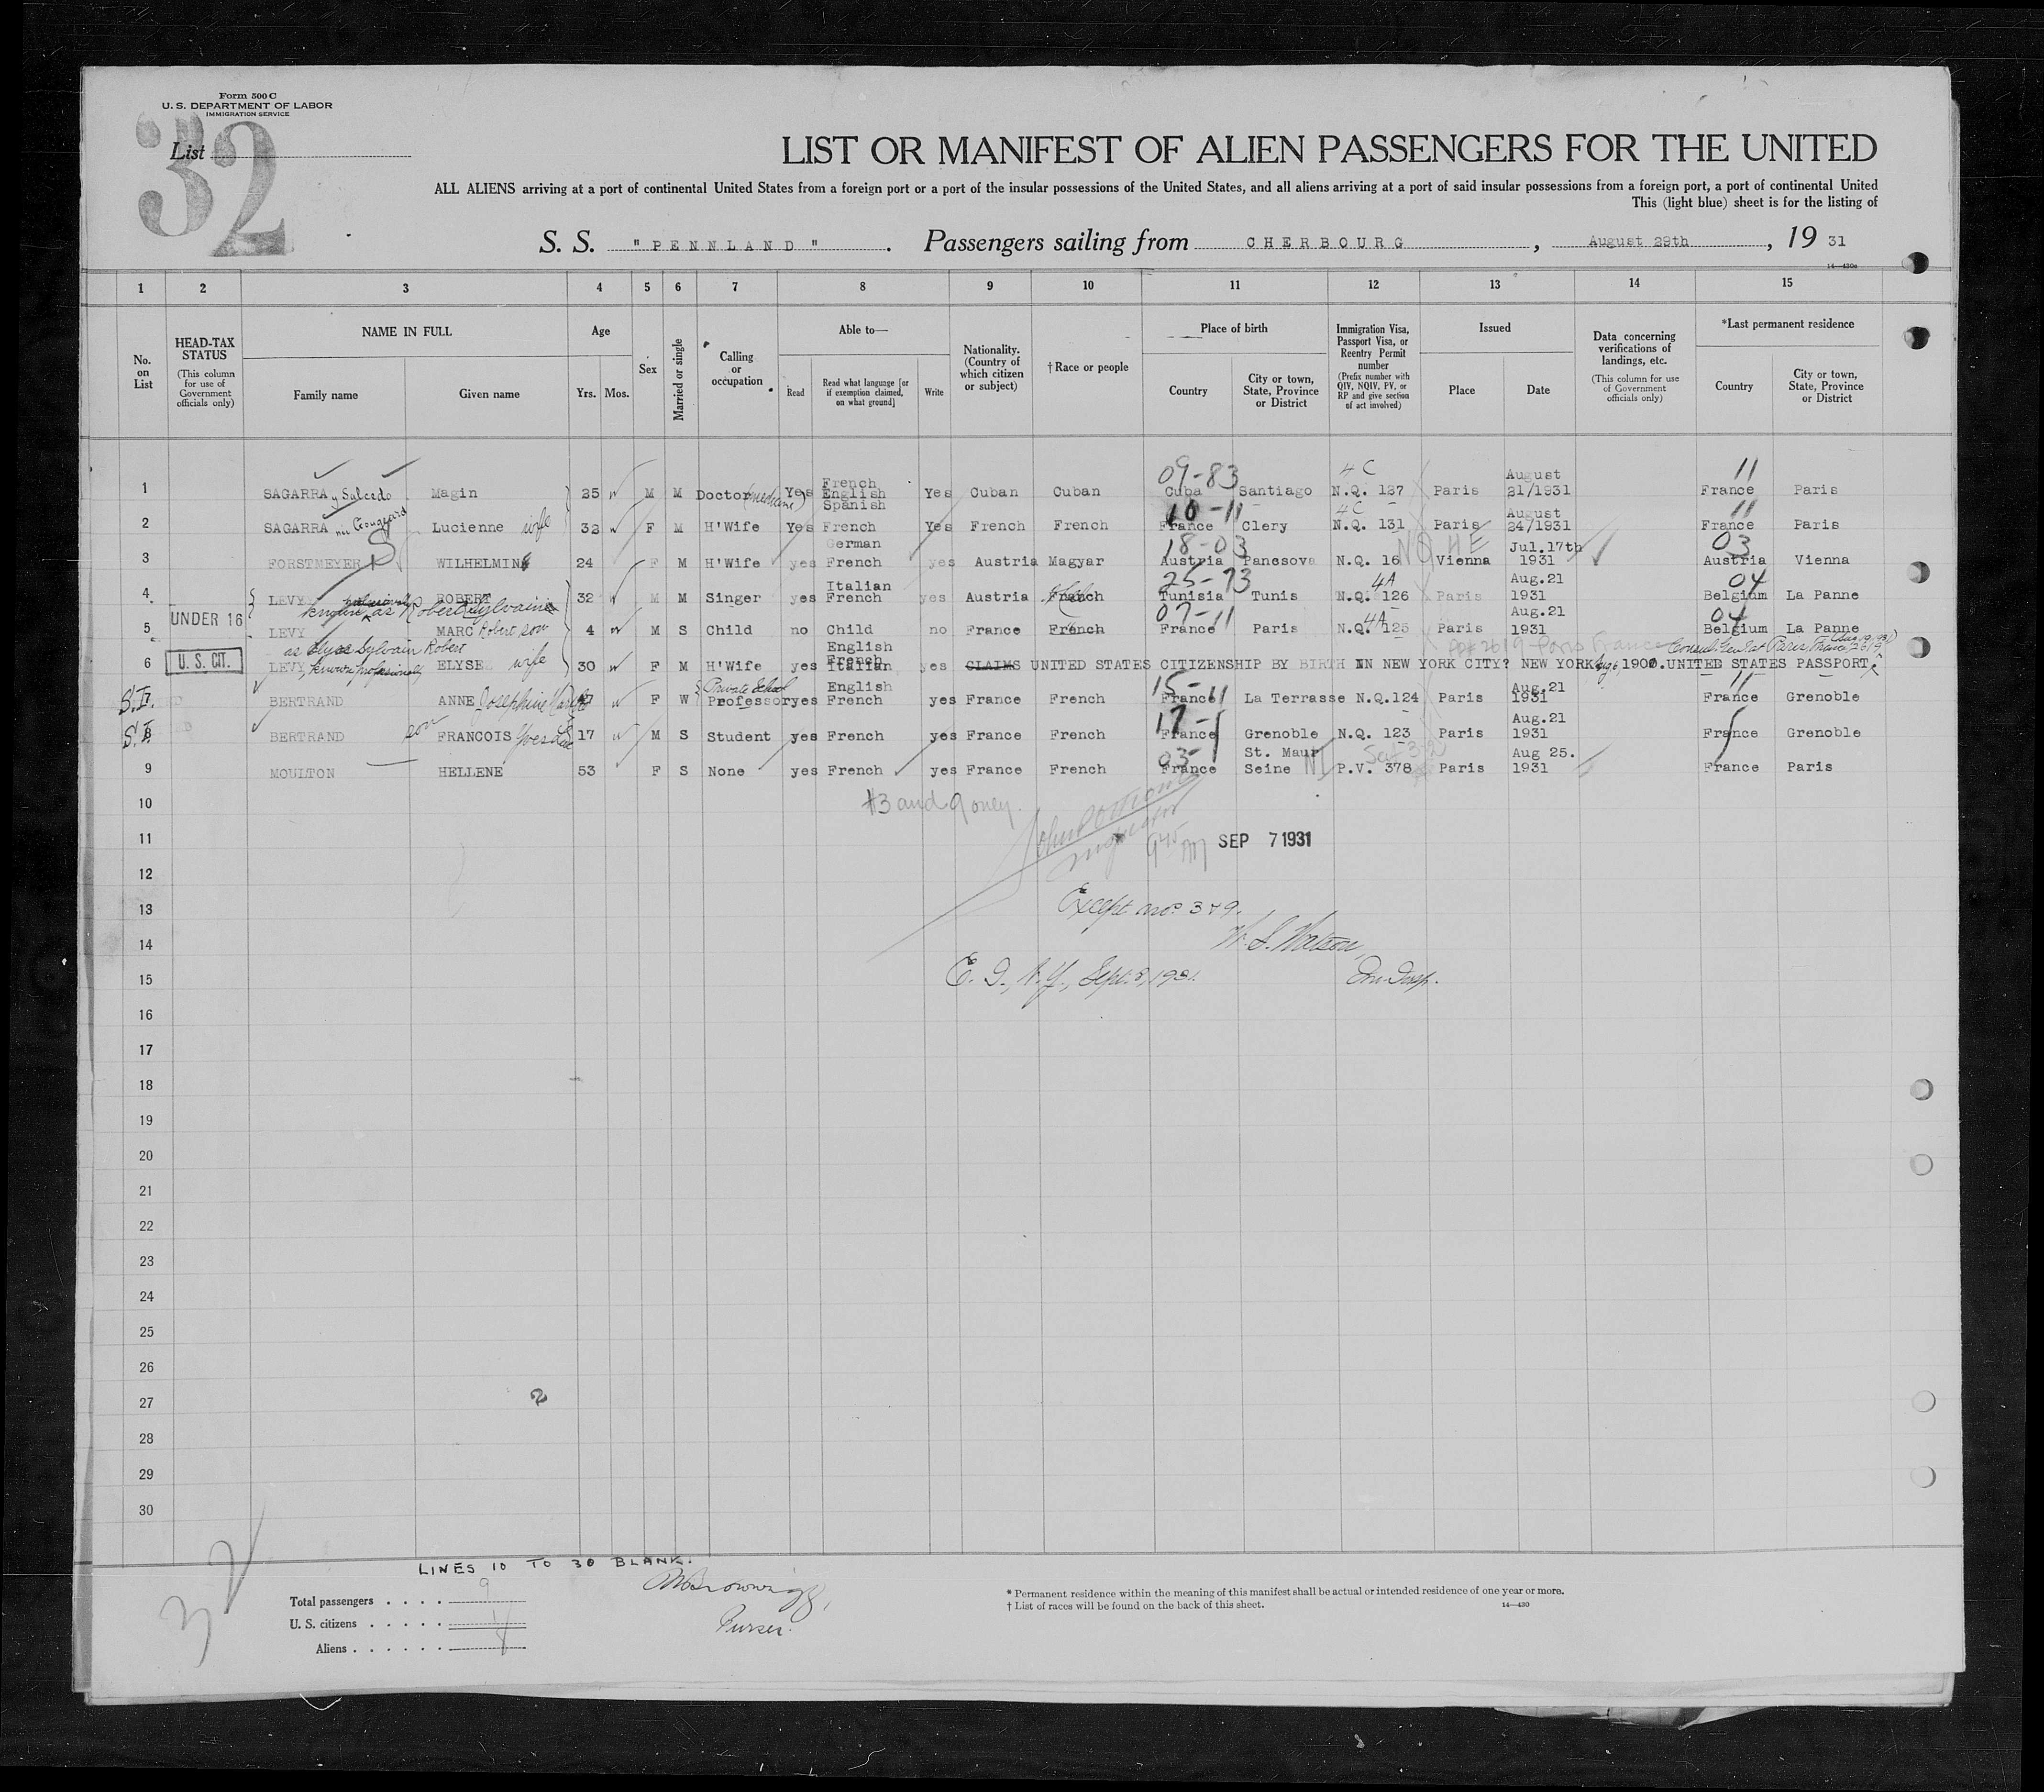 Form 500 C
U. S. DEPARTMENT OF LABOR
IMMIGRATION SERVICE
List
32
LIST OR MANIFEST OF ALIEN PASSENGERS FOR THE UNITED
ALL ALIENS arriving at a port of continental United States from a foreign port or a port of the insular possessions of the United States, and all aliens arriving at a port of said insular possessions from a foreign port, a port of continental United
This (light blue) sheet is for the listing of
S. S. " PENNLAND " . Passengers sailing from CHERBOURG , August 29th , 19 31
14—430a
1 2 3 4 5 6 7 8 9 10 11 12 13 14 15
No. on List
HEAD-TAX STATUS
(This column for use of Government officials only)
NAME IN FULL
Family name Given name
Age
Yrs. Mos.
Sex
Married or single
Calling or occupation
Able to—
Read
Read what language [or if exemption claimed, on what ground]
Write
Nationality. (Country of which citizen or subject)
†Race or people
Place of birth
Country
City or town, State, Province or District
Immigration Visa, Passport Visa, or Reentry Permit number
(Prefix number with QIV, NQIV, PV, or RP and give section of act involved)
Issued
Place Date
Data concerning verifications of landings, etc.
(This column for use of Government officials only)
*Last permanent residence
Country
City or town, State, Province or District
09-83 4C August 11
French
1 SAGARRA y Salcedo Magin 25 M M Doctor (medicine) Yes English Yes Cuban Cuban Cuba Santiago N.Q. 127 Paris 21/1931 France Paris
Spanish
10-11 4C August 11
2 SAGARRA Lucienne wife 32 F M H'Wife Yes French Yes French French France Clery N.Q. 131 Paris 24/1931 France Paris
German 18-03 Jul.17th 03
3 FORSTMEYER WILHELMINE 24 F M H'Wife yes French yes Austria Magyar Austria Pancsova N.Q. 16 Vienna 1931 Austria Vienna
Italian 25-73 4A Aug.21 04
4 LEVY ROBERT 32 M M Singer yes French yes Austria French Tunisia Tunis N.Q. 126 Paris 1931 Belgium La Panne
known professionally as Robert Sylvaine
UNDER 16 07-11 4A Aug.21 04
5 LEVY MARC Robert son 4 M S Child no Child no France French France Paris N.Q. 125 Paris 1931 Belgium La Panne
as Elyse Sylvain Robert English
French
6 U. S. CIT. LEVY, known professionally ELYSE wife 30 F M H'Wife yes Italian yes CLAIMS UNITED STATES CITIZENSHIP BY BIRTH IN NEW YORK CITY? NEW YORK Aug 6, 1900. UNITED STATES PASSPORT.
Private School English 15-11 Aug.21 11
S.I. BERTRAND ANNE Josephine F W Professor yes French yes France French France La Terrasse N.Q.124 Paris 1931 France Grenoble
17- Aug.21
S.I. 8 BERTRAND son FRANCOIS 17 M S Student yes French yes France French France Grenoble N.Q. 123 Paris 1931 France Grenoble
03- St. Maur Aug 25.
9 MOULTON HELLENE 53 F S None yes French yes France French France Seine P.V. 378 Paris 1931 France Paris
10
#3 and 9 only.
11
SEP 7 1931
12
13
Except nos. 3 & 9.
14
W. S. Watson,
15
E. I., N.Y., Sept. 8, 1931. Im. Insp.
16
17
18
19
20
21
22
23
24
25
26
27
2
28
29
30
32
LINES 10 TO 30 BLANK.
Total passengers . . . . 9
U. S. citizens . . . . . 1
Aliens . . . . . . 8
Purser.
* Permanent residence within the meaning of this manifest shall be actual or intended residence of one year or more.
† List of races will be found on the back of this sheet.
14—430